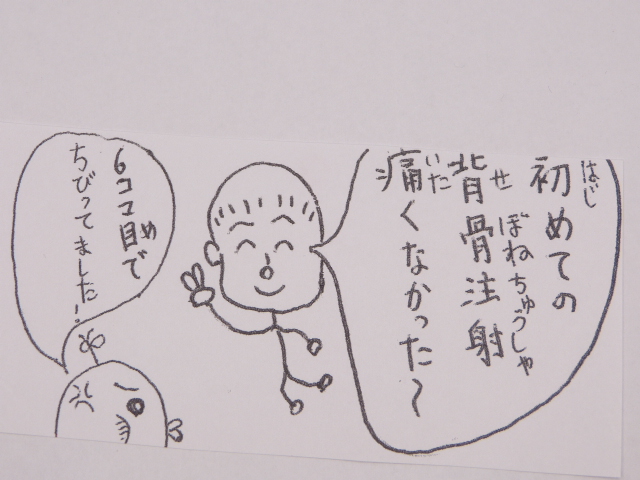 初めての
背骨注射
痛くなかった～
6コマ目で
ちびってました!